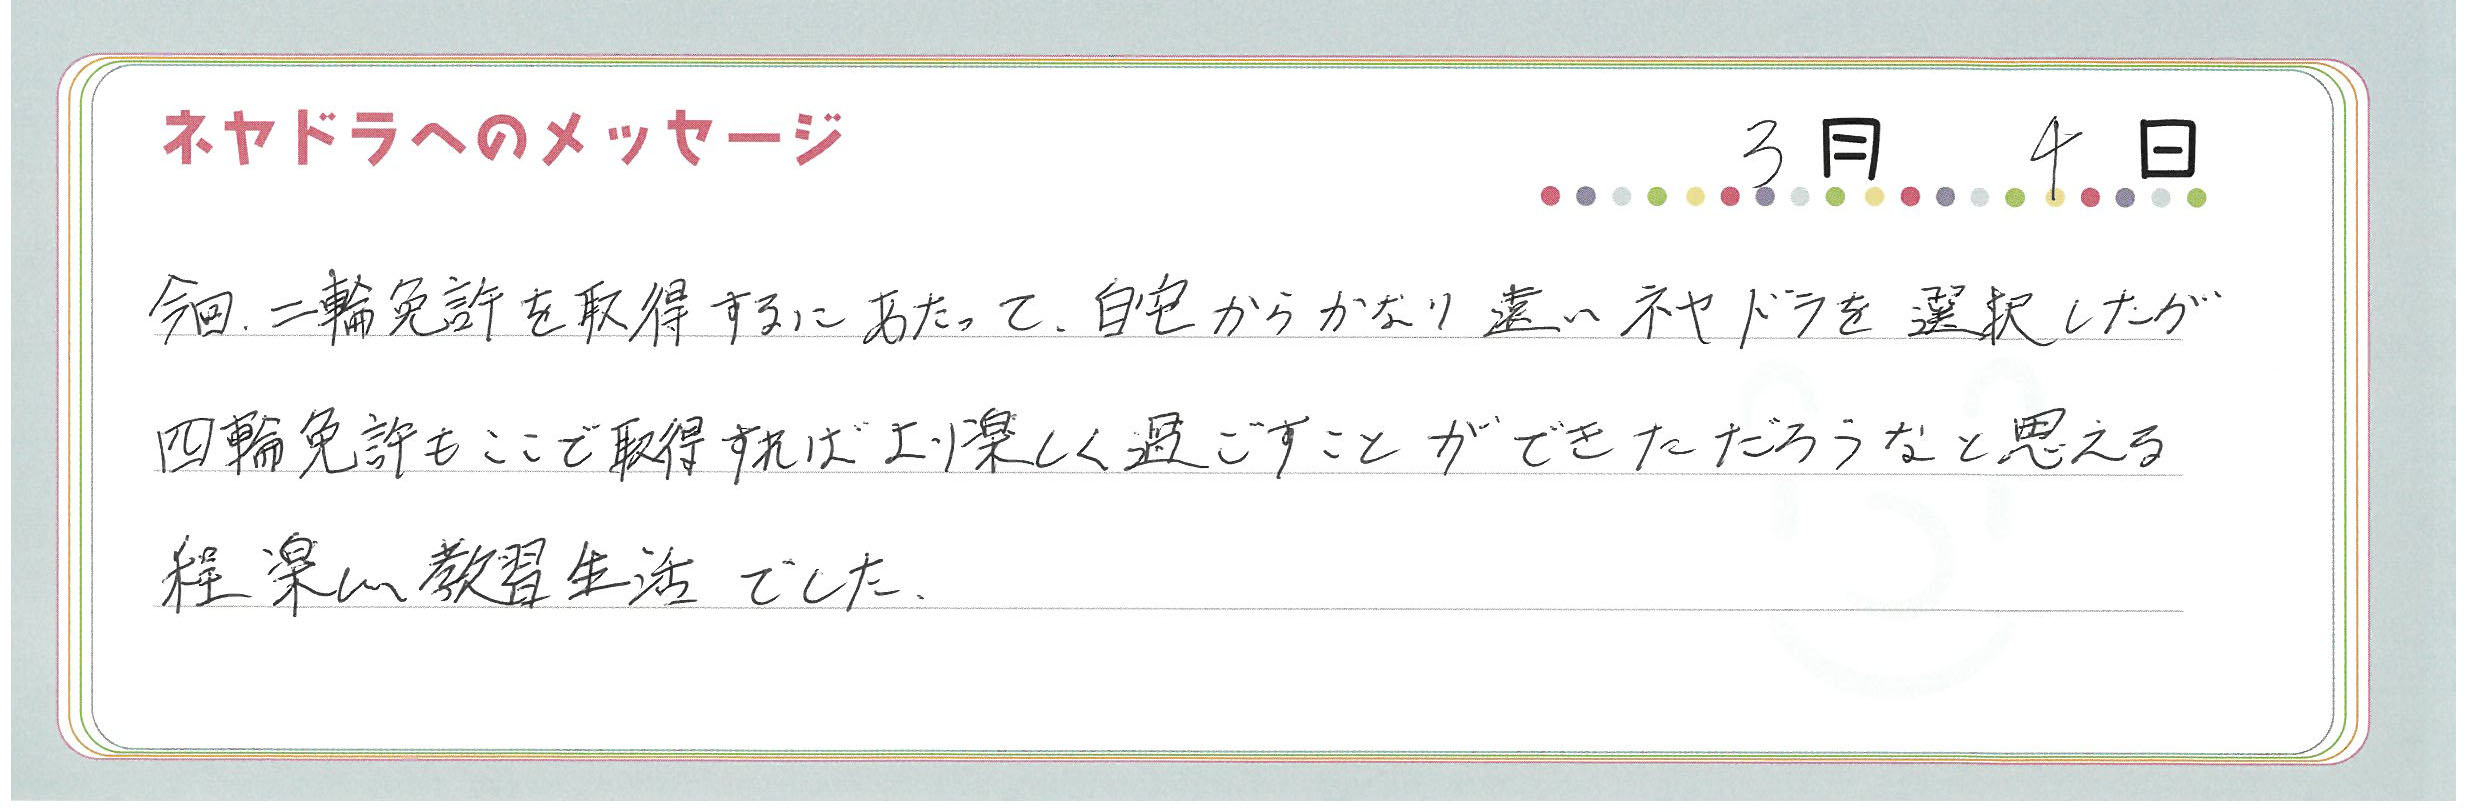 ネヤドラへのメッセージ
3月 4日
今回、二輪免許を取得するにあたって、自宅からかなり遠いネヤドラを選択したが
四輪免許もここで取得すればより楽しく過ごすことができただろうなと思える
程楽しい教習生活でした。